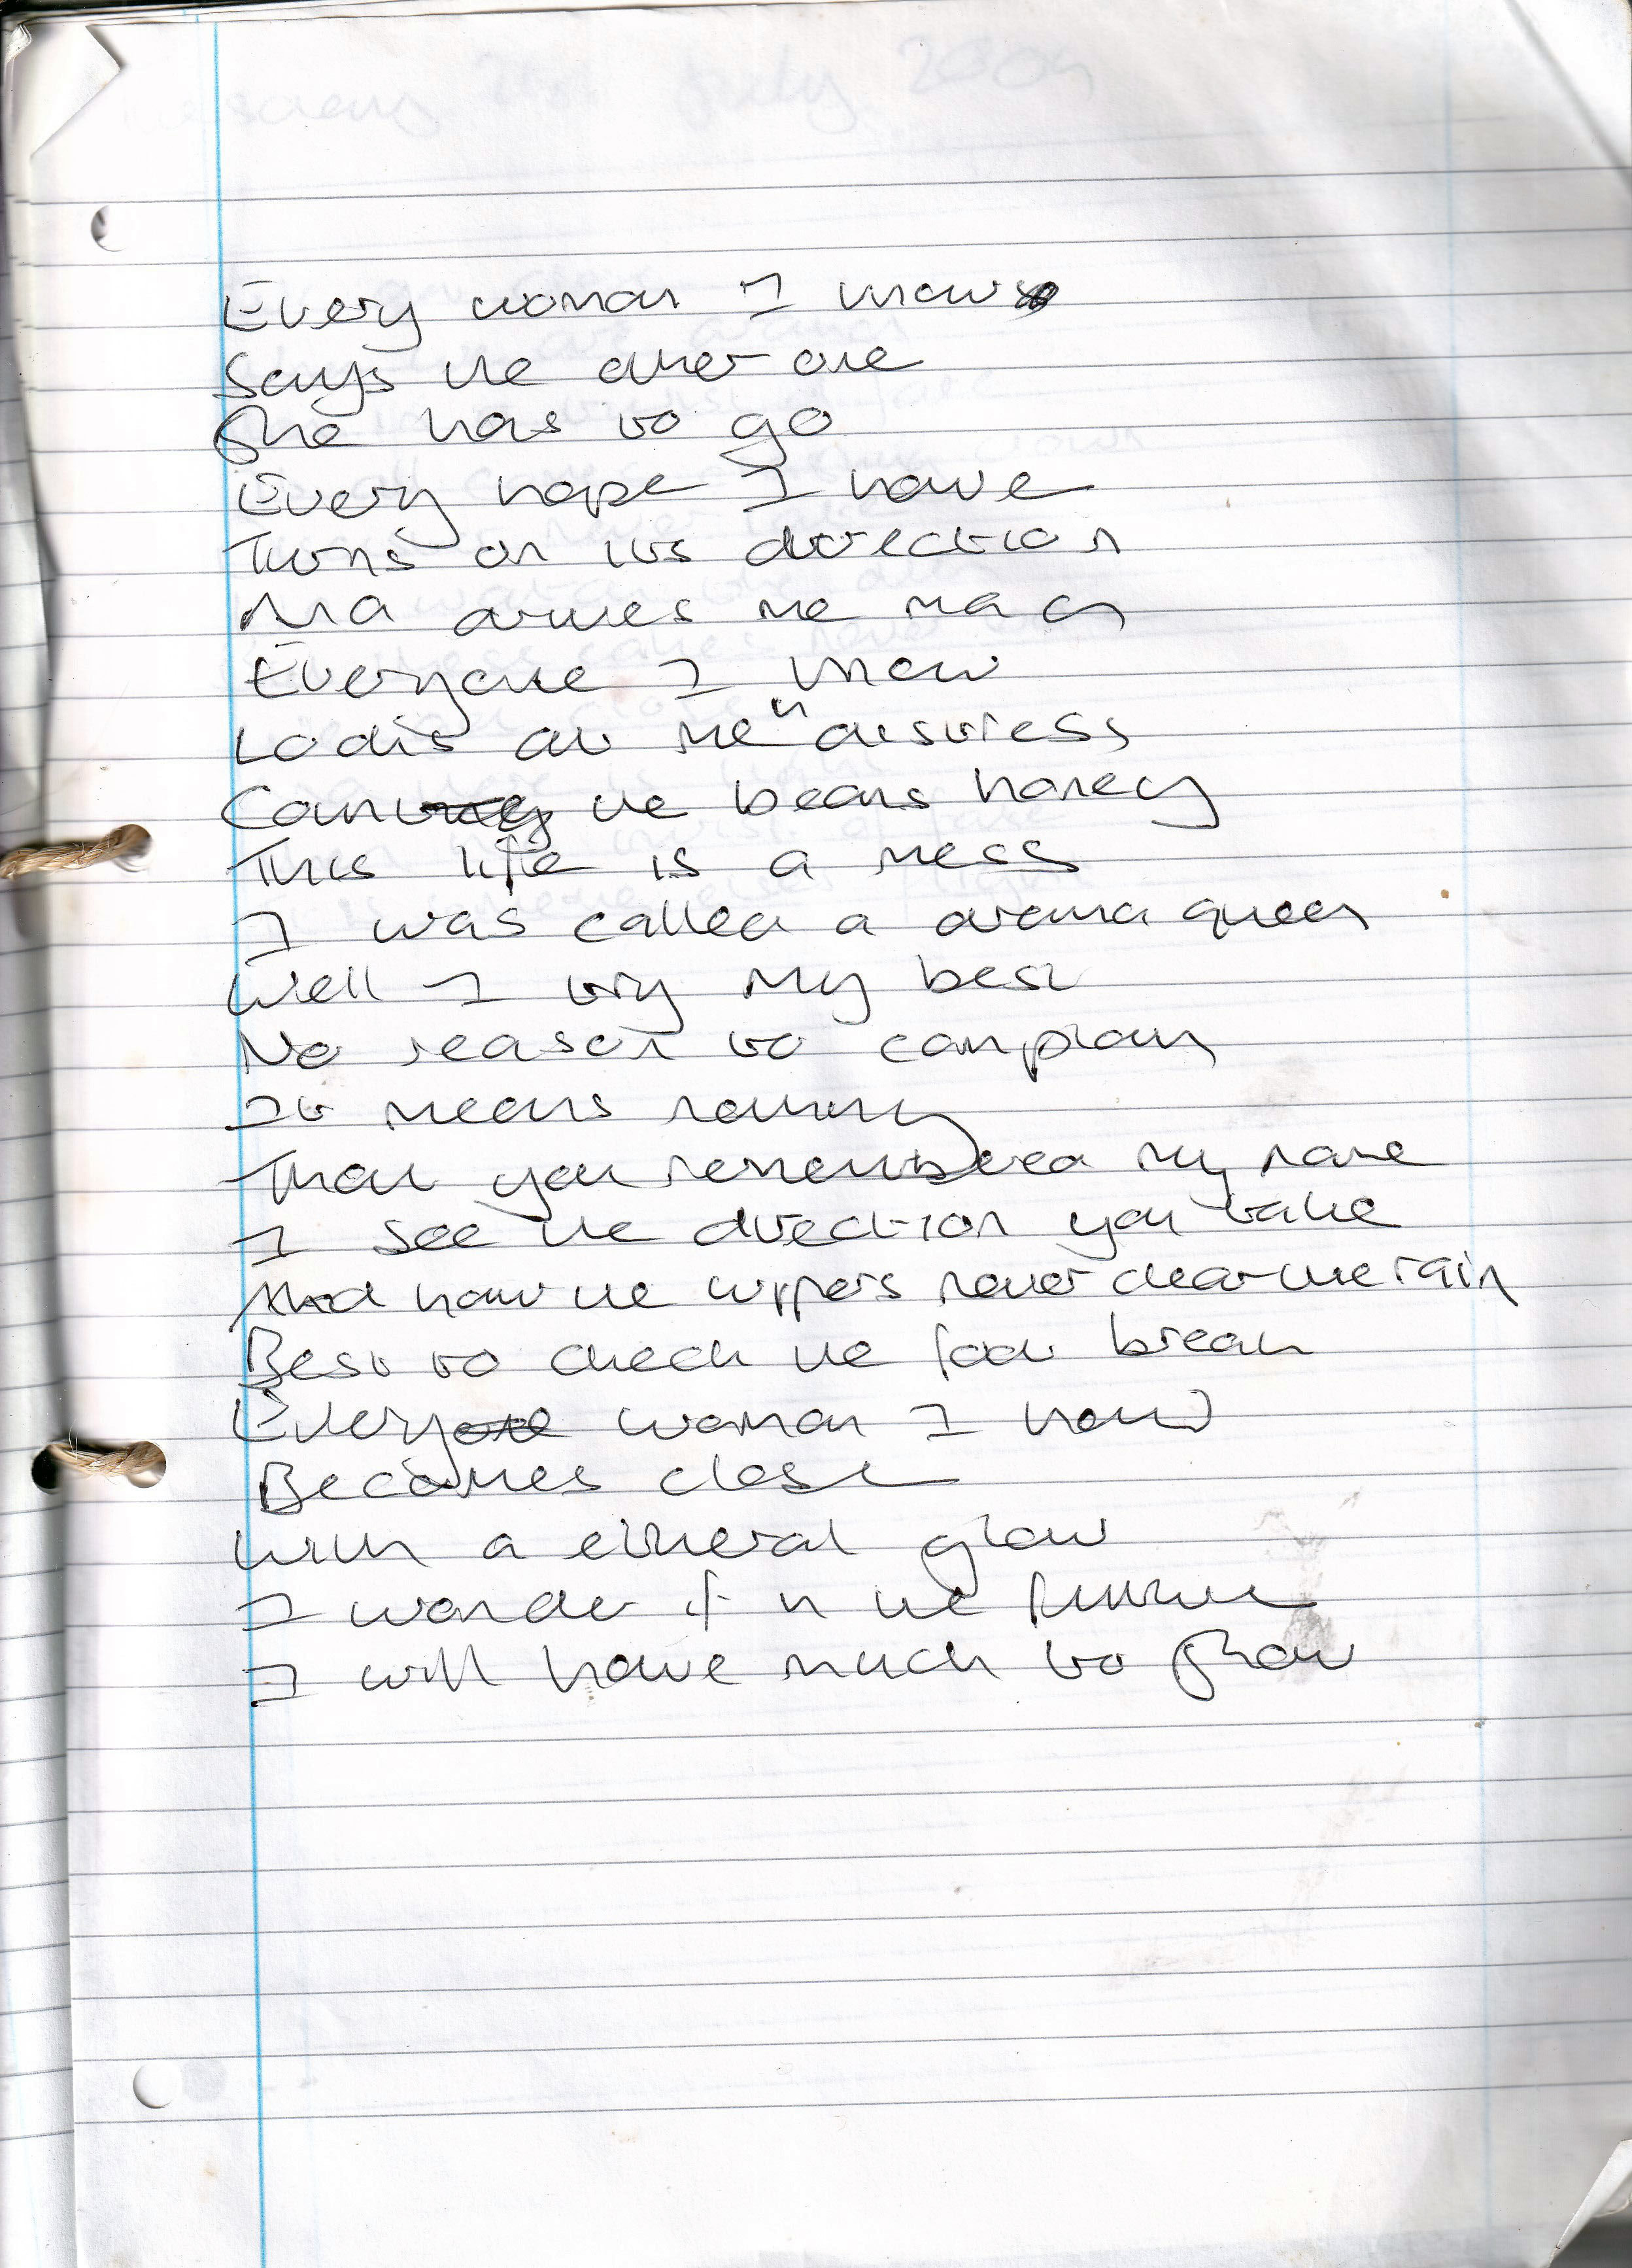 Every woman I know
Says the other one
She has to go
Every hope I have
Turns on its direction
And drives me mad
Everyone I know
Looks at me in distress
Count the beans honey
This life is a mess
I was called a drama queen
Well I try my best
No reason to complain
It means nothing
That you remembered my name
I see the direction you take
And how the wipers never clear the rain
Best to check the foot break
Every woman I know
Becomes close
With a etheral glow
I wonder if in the future
I will have much to show